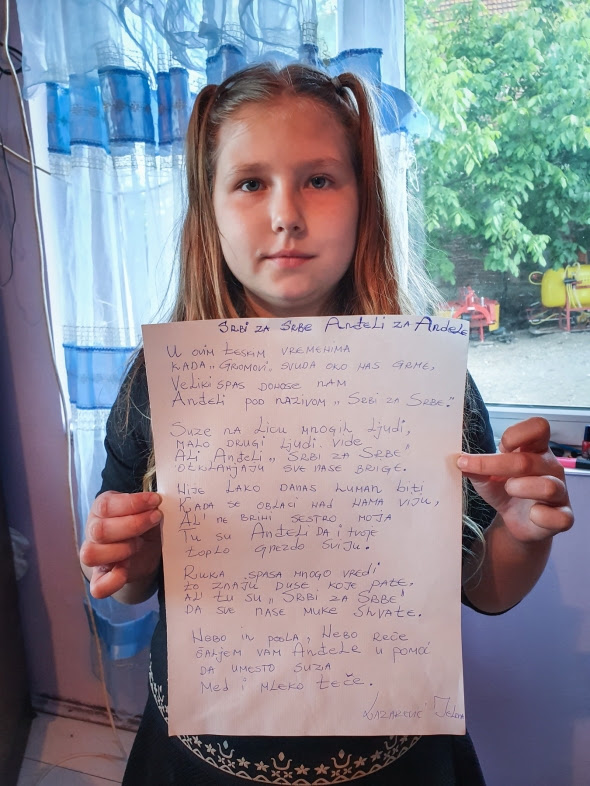 SRBI ZA SRBE ANĐELI ZA ANĐELE
U OVIM TEŠKIM VREMENIMA
KADA „GROMOVI" SVUDA OKO NAS GRME,
VELIKI SPAS DONOSE NAM
ANĐELI POD NAZIVOM „SRBI ZA SRBE."
SUZE NA LICU MNOGIH LJUDI,
MALO DRUGI LJUDI VIDE
ALI ANĐELI „SRBI ZA SRBE"
OTKLANJAJU SVE NAŠE BRIGE.
NIJE LAKO DANAS HUMAN BITI
KADA SE OBLACI NAD NAMA VIJU,
AL' NE BRINI SESTRO MOJA
TU SU ANĐELI DA I TVOJE
TOPLO GNEZDO SVIJU.
RUKA SPASA MNOGO VREDI
TO ZNAJU DUŠE KOJE PATE.
AL TU SU „SRBI ZA SRBE"
DA SVE NAŠE MUKE SHVATE.
NEBO IH POSLA, NEBO REČE
ŠALJEM VAM ANĐELE U POMOĆ
DA UMESTO SUZA
MED I MLEKO TEČE.
LAZAREVIĆ JELENA